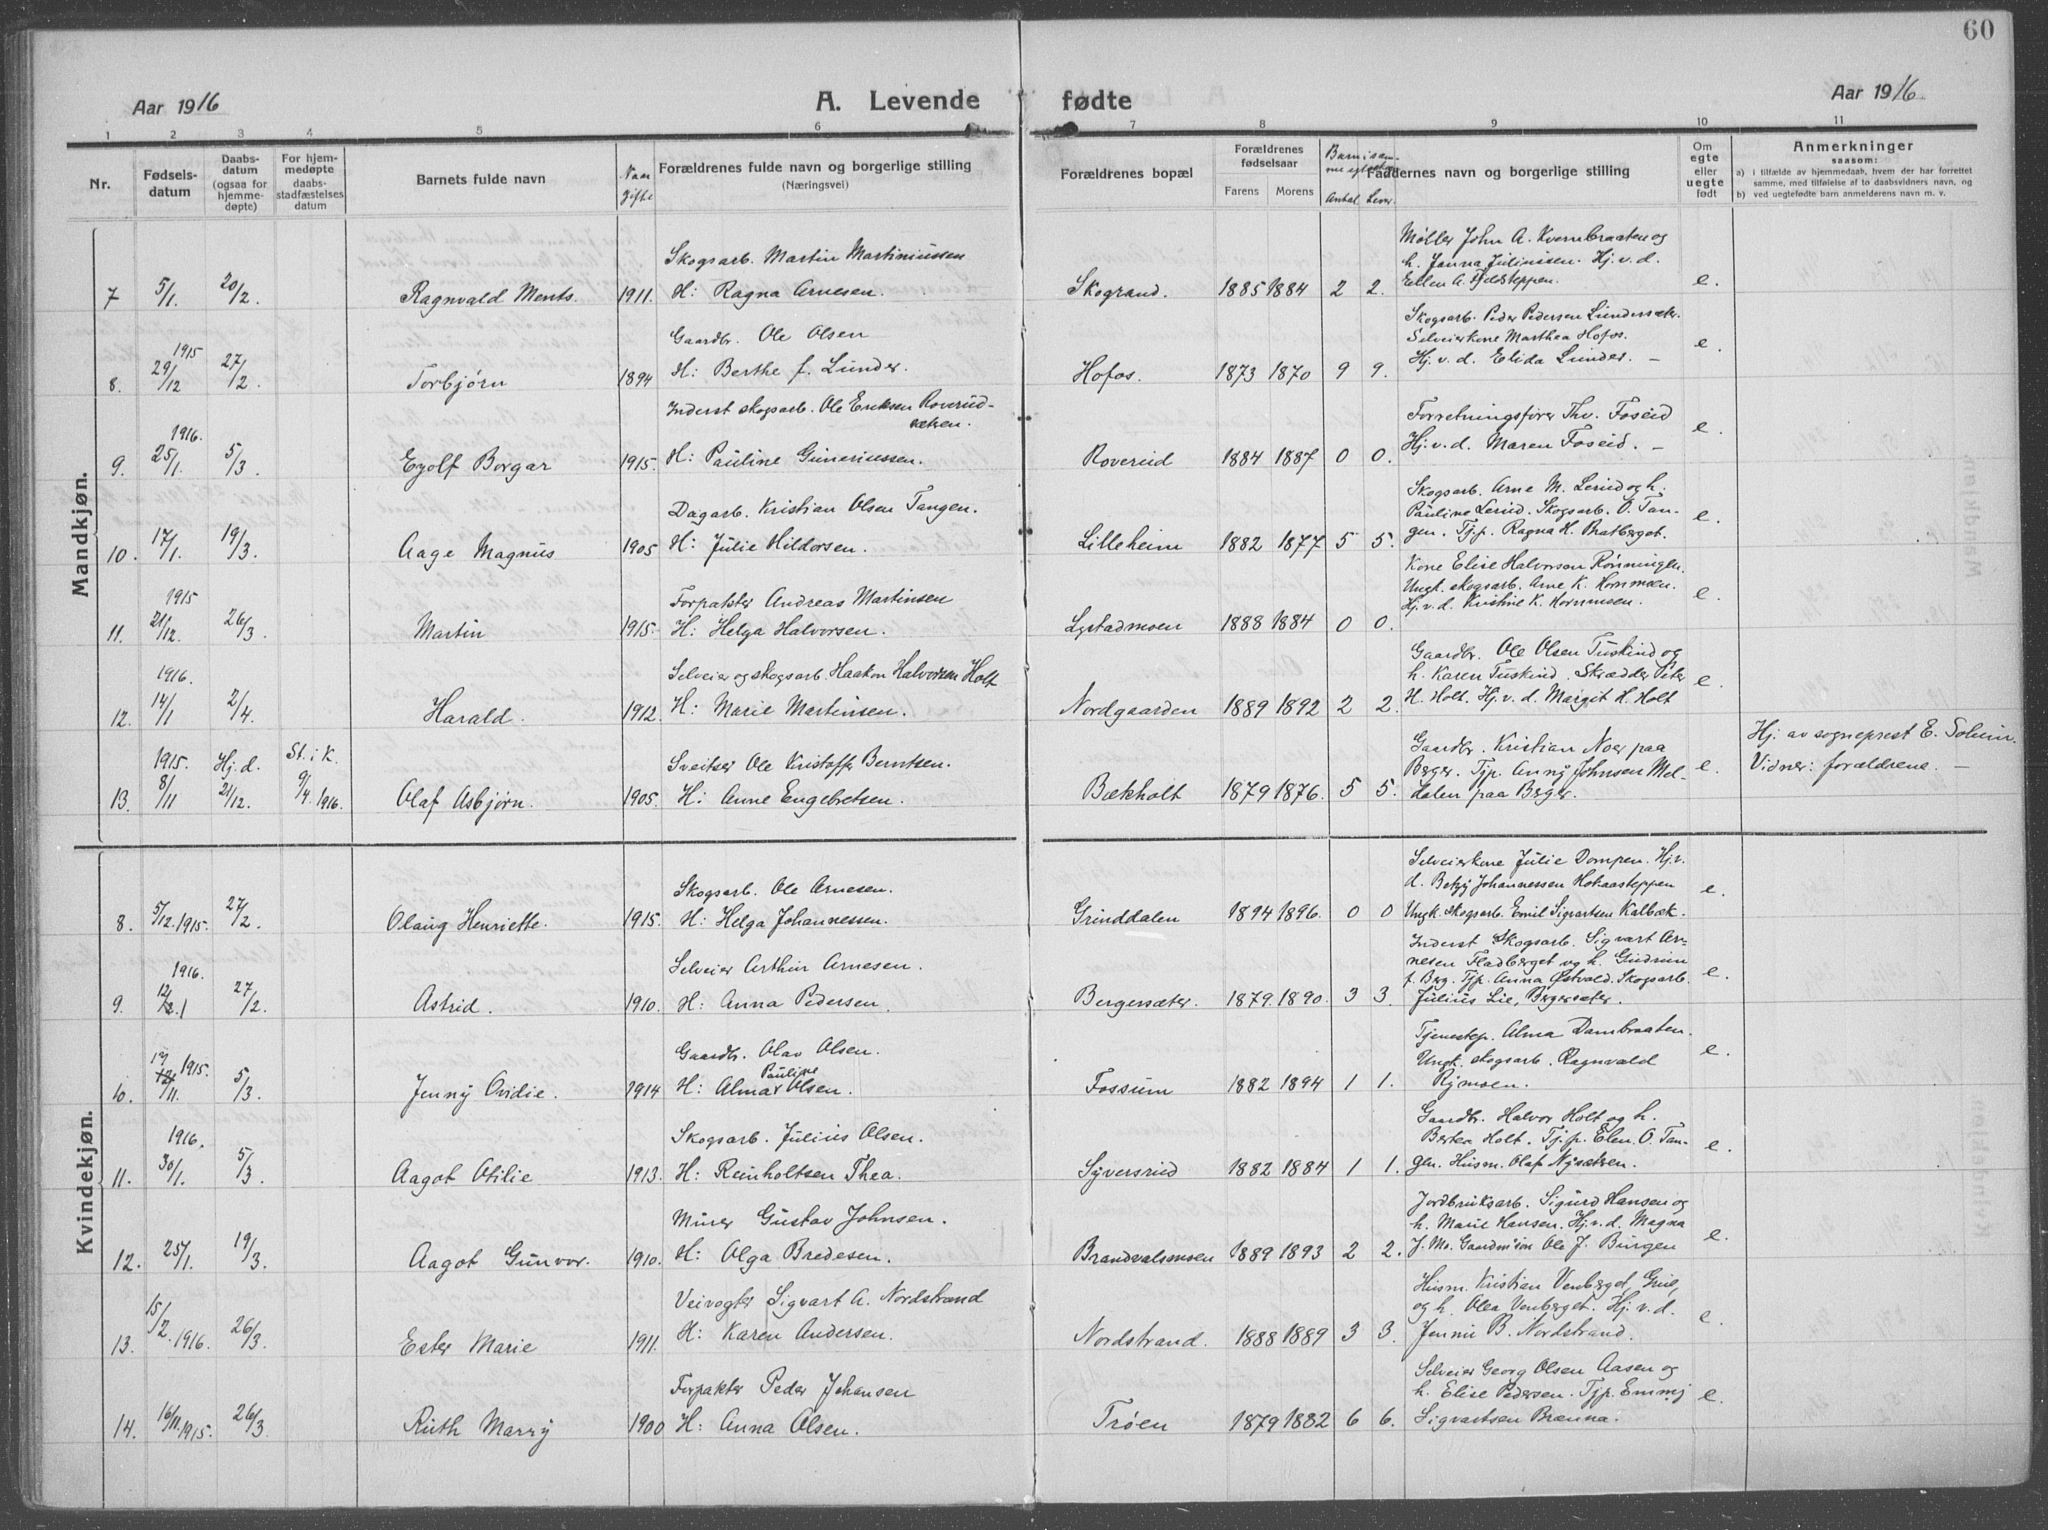 60
Aar 1916
A. Levende fødte
Aar 1916
1 2 3 4 5 6 7 8 9 10 11
Nr.
Fødsels-
datum
Daabs-
datum
(ogsaa for
hjemme-
døpte)
For hjem-
medøpte
daabs-
stadfæstelses
datum
Barnets fulde navn
Naar
gifte
Forældrenes fulde navn og borgerlige stilling
(Næringsvei)
Forældrenes bopæl
Forældrenes
fødselsaar
Farens Morens
Barn i sam-
me egteskap
Antal Lever.
Faddernes navn og borgerlige stilling
Om
egte
eller
uegte
født
Anmerkninger
saasom:
a) i tilfælde av hjemmedaab, hvem der har forrettet
samme, med tilføielse af to daabsvidners navn, og
b) ved uegtefødte barn anmelderens navn m. v.
Mandkjøn.
7 5/1. 20/2. Ragnvald Ments. 1911.
Skogsarb. Martin Martiniussen
H: Ragna Arnesen.
Skogrand. 1885 1884 2 2.
Møller John A. Kvernbraaten og
h. Janna Juliussen. Hj. v. d.
Ellen A. Fjeldsteppen.
e.
8. 1915 29/12 27/2. Torbjørn 1894
Gaardbr. Ole Olsen
H: Berthe f. Lunder.
Hofos. 1873 1870 9 9.
Skogsarb. Peder Pedersen Lundersæter.
Selveierkone Marthea Hofos.
Hj. v. d. Elida Lunder. –
e.
9. 1916. 25/1. 5/3. Eyolf Borgar 1915.
Inderst skogsarb. Ole Eriksen Roverud-
sætren.
H: Pauline Gunariussen.
Roverud 1884 1887 0 0.
Forretningsfører Thv. Foseid
Hj. v. d. Maren Foseid. –
e.
10. 17/1. 19/3. Aage Magnus 1905
Dagarb. Kristian Olsen Tangen.
H: Julie Hildorsen.
Lilleheim 1882 1877 5 5.
Skogsarb. Arne M. Lerud og h.
Pauline Lerud. Skogsarb. O. Tan-
gen. Tj. p. Ragna H. Bratberget.
e.
11. 1915 21/12. 26/3. Martin 1915.
Forpakter Andreas Martinsen
H: Helga Halvorsen.
Lystadmoen 1888 1884 0 0.
Kone Elise Halvorsen Rønningen.
Ungk. skogsarb. Arne K. Hornmoen.
Hj. v. d. Kristine K. Hornmoen.
e.
12. 1916. 14/1 2/4. Harald. 1912.
Selveier og skogsarb. Haakon Halvorsen Holt
H: Marie Martinsen.
Nordgaarden 1889 1892 2 2.
Gaardbr. Ole Olsen Tuskind og
h. Karen Tuskind. Skrædder Peter
H. Holt. Hj. v. d. Margit H. Holt
e.
13. 1915. 8/11 Hj. d. 21/12. St. i K. 9/4. 1916. Olaf Asbjørn. 1905.
Sveitser Ole Kristoffer Berntsen.
H: Anne Engebretsen.
Bækholt 1879 1876. 5 5.
Gaardbr. Kristian Noer paa
Berger. Tjp. Anny Johnsen Mel-
dalen paa Berger.
e.
Hj. av sogneprest E. Solum.
Vidner: forældrene. –
Kvindekjøn.
8. 5/12. 1915. 27/2. Olaug Henriette. 1915.
Skogsarb. Ole Arnesen.
H: Helga Johannessen.
Grinddalen 1894 1896. 0 0
Selveierkone Julie Dompen. Hj. v.
d. Betzy Johannessen Hokaasteppen
Ungk. skogsarb. Emil Sigvartsen Kalbæk.
e.
9. 1916. 12/1 27/2. Astrid. 1910.
Selveier Arthur Arnesen.
H: Anna Pedersen.
Bergersæter. 1879. 1890. 3 3.
Inderst Skogsarb. Sigvart Ar-
nesen Fladberget og h. Gudrun
f. Berg. Tjp. Anna Østvald. Skogsarb.
Julius Lie, Bergersæter.
e.
10. 17/11. 1915. 5/3. Jenny Ovidie. 1914
Gaardbr. Olav Olsen.
H: Alma Pauline Olsen.
Fossum 1882 1894 1 1.
Tjenestep. Alma Dambraaten.
Ungk. skogsarb. Ragnvald
Rymoen.
e.
11. 1916. 30/1. 5/3. Aagot Otilie 1913.
Skogsarb. Julius Olsen.
H: Reinholtsen Thea.
Syversrud 1882 1884 1 1.
Gaardbr. Halvor Holt og h.
Bertea Holt. Tj. p. Elen O. Tan-
gen. Husm. Olaf Nysætren.
e.
12. 25/1. 19/3. Aagot Gunvor. 1910.
Murer Gustav Johnsen.
H: Olga Bredesen.
Brandvalsmoen 1889 1893 2 2.
Jordbruksarb. Sigurd Hansen og
h. Marie Hansen. Hj. v. d. Magna
J. Mo. Gaardmøn Ole J. Burgen
e.
13. 15/2. 1916. 26/3. Ester Marie 1911.
Veivogter Sigvart A. Nordstrand
H: Karen Andersen.
Nordstrand. 1888 1889 3 3.
Husm. Kristian Venberget, Grue,
og h. Olea Venberget. Hj. v. d.
Jennie B. Nordstrand.
e.
14. 16/11. 1915. 26/3. Ruth Marry 1900
Forpakter Peder Johansen
H: Anna Olsen.
Trøen 1879 1882 6 6.
Selveier Georg Olsen Aasen og
h. Elise Pedersen. Tjp. Emmy
Sigvartsen Brænna.
e.